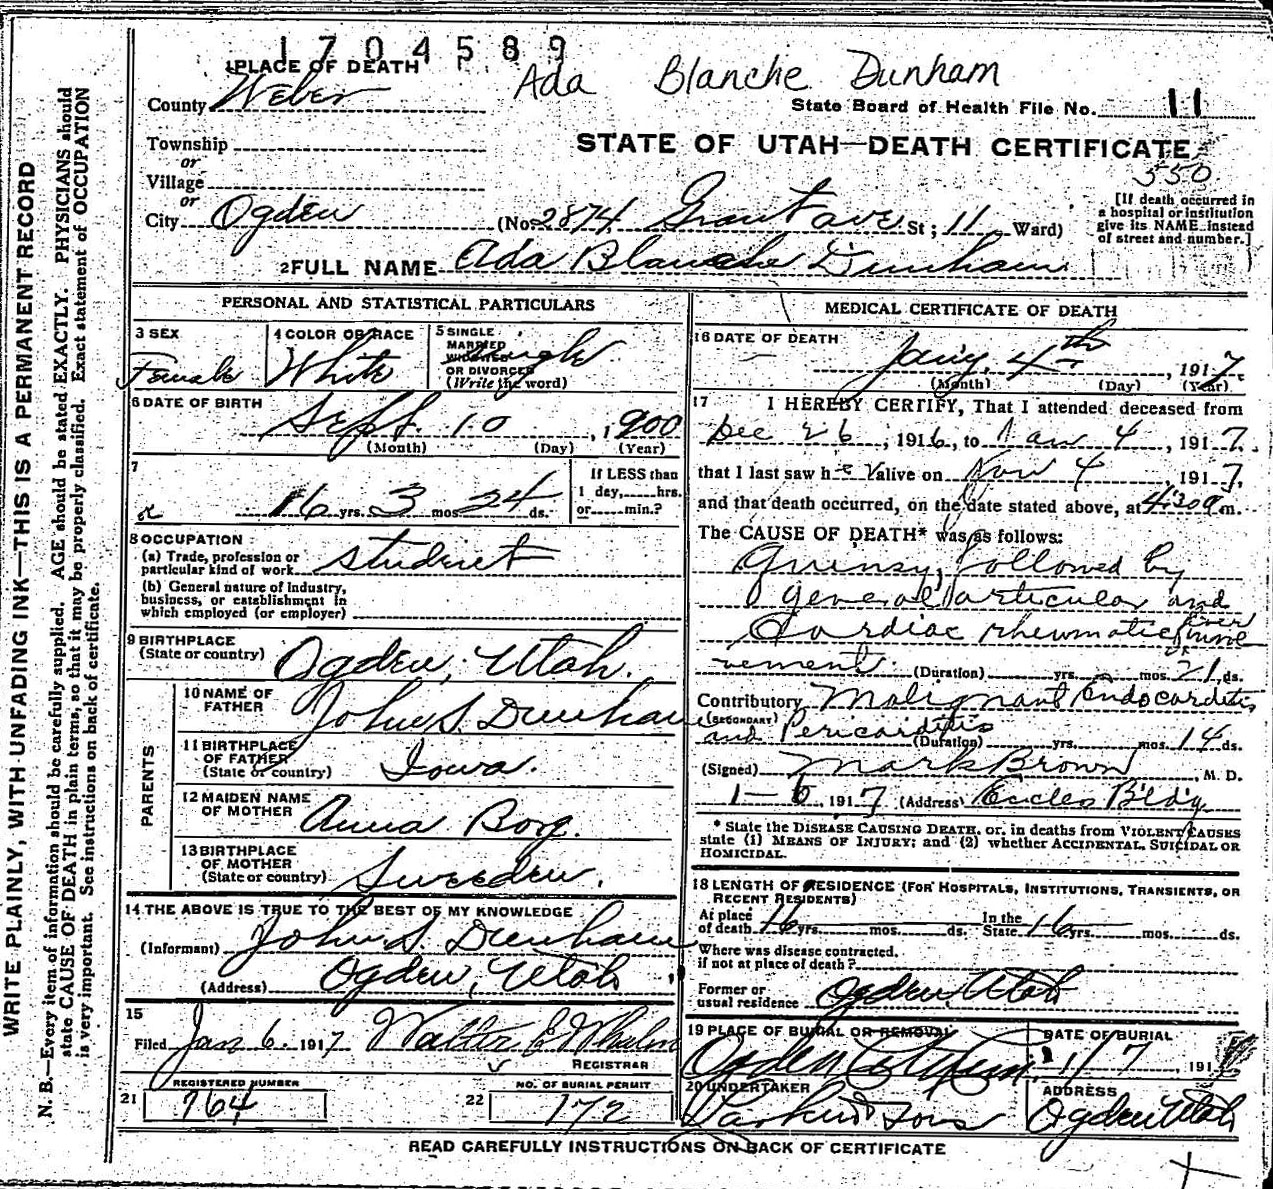 1704589
Ada Blanche Dunham
1 PLACE OF DEATH
County Weber
State Board of Health File No. 11
Township
or
Village
or
STATE OF UTAH—DEATH CERTIFICATE
350
City Ogden (No. 2874 Grant ave St; 11 Ward)
[If death occurred in
a hospital or institution
give its NAME instead
of street and number.]
2 FULL NAME Ada Blanche Dunham
PERSONAL AND STATISTICAL PARTICULARS
3 SEX
Female
4 COLOR OR RACE
White
5 SINGLE
MARRIED
WIDOWED
OR DIVORCED
(Write the word)
Single
6 DATE OF BIRTH
Sept. 10, 1900
(Month) (Day) (Year)
7
16 yrs. 3 mos. 24 ds.
If LESS than
1 day, hrs.
or min.?
8 OCCUPATION
(a) Trade, profession or
particular kind of work student
(b) General nature of industry,
business, or establishment in
which employed (or employer)
9 BIRTHPLACE
(State or country) Ogden, Utah.
PARENTS
10 NAME OF
FATHER John S. Dunham
11 BIRTHPLACE
OF FATHER
(State or country) Iowa.
12 MAIDEN NAME
OF MOTHER Anna Borg.
13 BIRTHPLACE
OF MOTHER
(State or country) Sweeden.
14 THE ABOVE IS TRUE TO THE BEST OF MY KNOWLEDGE
(Informant) John S. Dunham
(Address) Ogden, Utah
15
Filed Jan 6. 1917 Walter E Whalen
REGISTRAR
21 REGISTERED NUMBER
764
22 NO. OF BURIAL PERMIT
172
MEDICAL CERTIFICATE OF DEATH
16 DATE OF DEATH
Jany. 4th, 1917.
(Month) (Day) (Year)
17 I HEREBY CERTIFY, That I attended deceased from
Dec 26, 1916, to Jan 4, 1917.
that I last saw her alive on Nov 4 1917,
and that death occurred, on the date stated above, at 4:30 a m.
The CAUSE OF DEATH* was as follows:
Quinsy, followed by
general articular and
Cardiac rheumatic fever
vement (Duration) yrs. mos. 21 ds.
Contributory Malignant Endocarditis
(SECONDARY)
and Pericarditis (Duration) yrs. mos. 14 ds.
(Signed) Mark Brown, M. D.
1-6, 1917 (Address) Eccles Bldg
* State the DISEASE CAUSING DEATH, or, in deaths from VIOLENT CAUSES
state (1) MEANS OF INJURY; and (2) whether ACCIDENTAL, SUICIDAL OR
HOMICIDAL.
18 LENGTH OF RESIDENCE (FOR HOSPITALS, INSTITUTIONS, TRANSIENTS, OR
RECENT RESIDENTS)
At place
of death 16 yrs. mos. ds. In the
State 16 yrs. mos. ds.
Where was disease contracted,
if not at place of death?
Former or
usual residence Ogden, Utah
19 PLACE OF BURIAL OR REMOVAL
Ogden
DATE OF BURIAL
1/7, 191
20 UNDERTAKER
Larkin & Sons
ADDRESS
Ogden Utah
READ CAREFULLY INSTRUCTIONS ON BACK OF CERTIFICATE
WRITE PLAINLY, WITH UNFADING INK—THIS IS A PERMANENT RECORD
N. B.—Every item of information should be carefully supplied. AGE should be stated EXACTLY. PHYSICIANS should
state CAUSE OF DEATH in plain terms, so that it may be properly classified. Exact statement of OCCUPATION
is very important. See instructions on back of certificate.